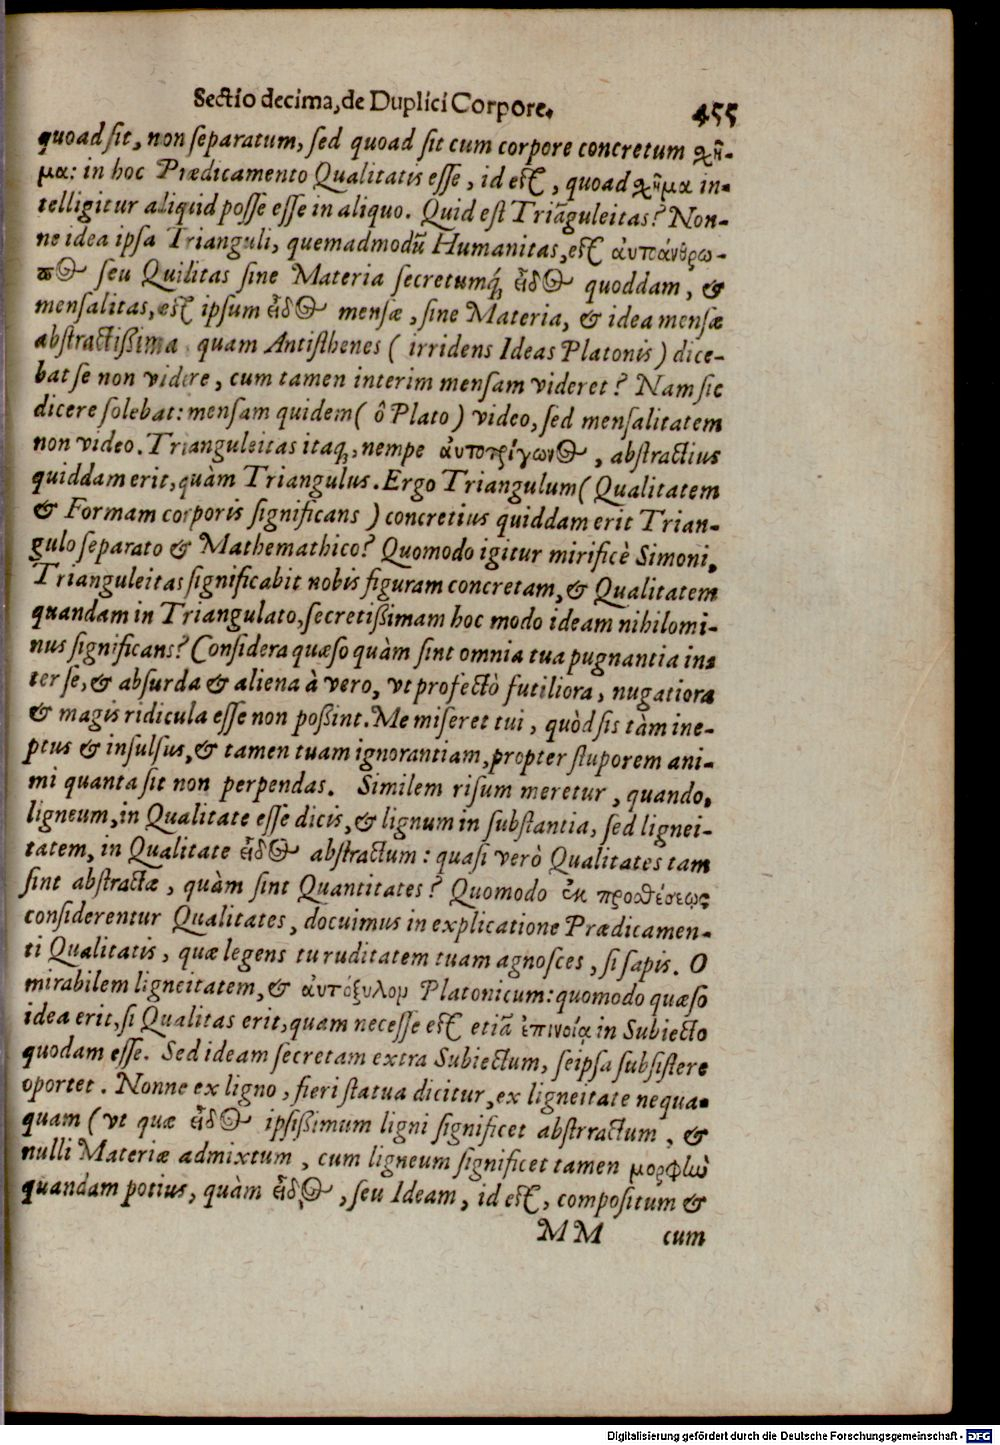 Sectio decima, de Duplici Corpore. 455
quoad sit, non separatum, sed quoad sit cum corpore concretum χῆ-
μα: in hoc Prædicamento Qualitatis esse, id est, quoad χῆμα in-
telligitur aliquid posse esse in aliquo. Quid est Triāguleitas? Non-
ne idea ipsa Trianguli, quemadmodū Humanitas, est αὐτοάνθρω-
πος seu Quilitas sine Materia secretumq́; εἶδος quoddam, &
mensalitas, est ipsum εἶδος mensæ, sine Materia, & idea mensæ
abstractißima quam Antisthenes ( irridens Ideas Platonis ) dice-
bat se non videre, cum tamen interim mensam videret? Nam sic
dicere solebat: mensam quidem ( ô Plato ) video, sed mensalitatem
non video. Trianguleitas itaq;, nempe αὐτοτρίγωνος, abstractius
quiddam erit, quàm Triangulus. Ergo Triangulum ( Qualitatem
& Formam corporis significans ) concretius quiddam erit Trian-
gulo separato & Mathemathico? Quomodo igitur mirificè Simoni,
Trianguleitas significabit nobis figuram concretam, & Qualitatem
quandam in Triangulato, secretißimam hoc modo ideam nihilomi-
nus significans? Considera quæso quàm sint omnia tua pugnantia in-
ter se, & absurda & aliena à vero, vt profectò futiliora, nugatiora
& magis ridicula esse non poßint. Me miseret tui, quòd sis tàm ine-
ptus & insulsus, & tamen tuam ignorantiam, propter stuporem ani-
mi quanta sit non perpendas. Similem risum meretur, quando,
ligneum, in Qualitate esse dicis, & lignum in substantia, sed lignei-
tatem, in Qualitate εἶδος abstractum: quasi verò Qualitates tam
sint abstractæ, quàm sint Quantitates? Quomodo ἐκ προσθέσεως
considerentur Qualitates, docuimus in explicatione Prædicamen-
ti Qualitatis, quæ legens tu ruditatem tuam agnosces, si sapis. O
mirabilem ligneitatem, & αὐτόξυλον Platonicum: quomodo quæso
idea erit, si Qualitas erit, quam necesse est etiā ἐπινοίᾳ in Subiecto
quodam esse. Sed ideam secretam extra Subiectum, seipsa subsistere
oportet. Nonne ex ligno, fieri statua dicitur, ex ligneitate nequa-
quam ( vt quæ εἶδος ipsißimum ligni significet abstrractum, &
nulli Materiæ admixtum, cum ligneum significet tamen μορφὼ
quandam potius, quàm εἶδος, seu Ideam, id est, compositum &
MM cum
Digitalisierung gefördert durch die Deutsche Forschungsgemeinschaft - DFG